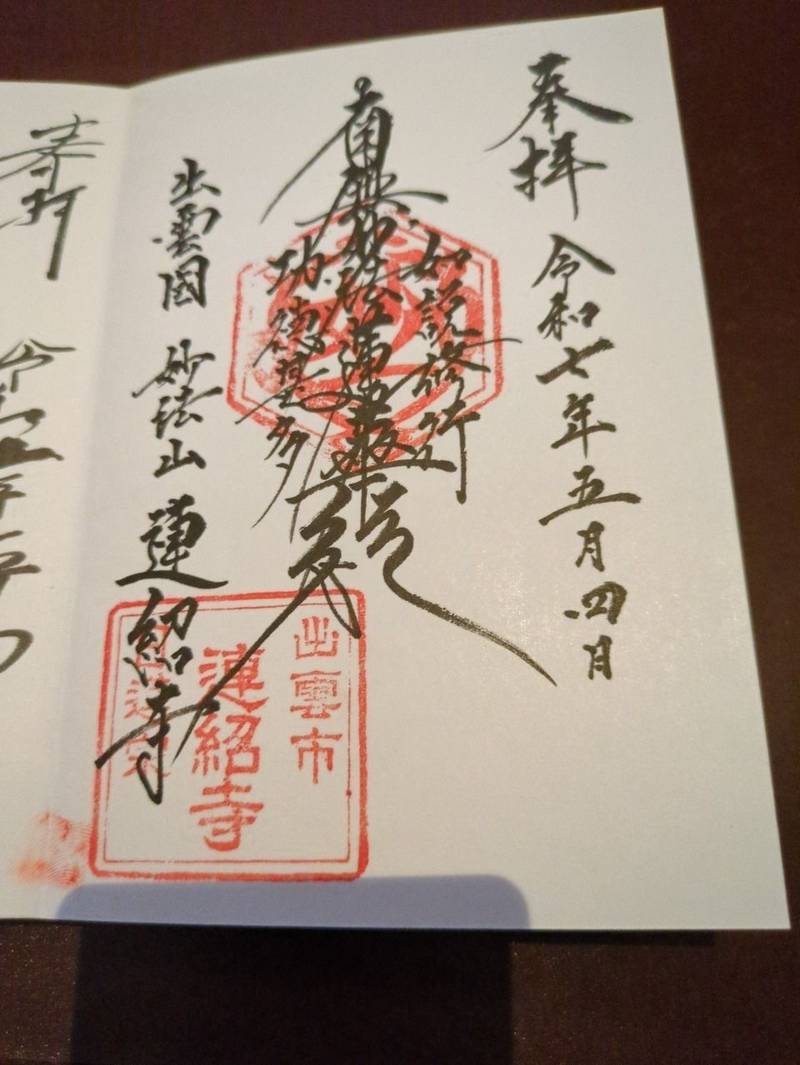 奉拝 令和七年五月四日
如説修行
南無妙法蓮華経
功徳甚多
出雲国 妙法山 蓮紹寺
出雲市
蓮紹寺
日蓮宗
奉拝